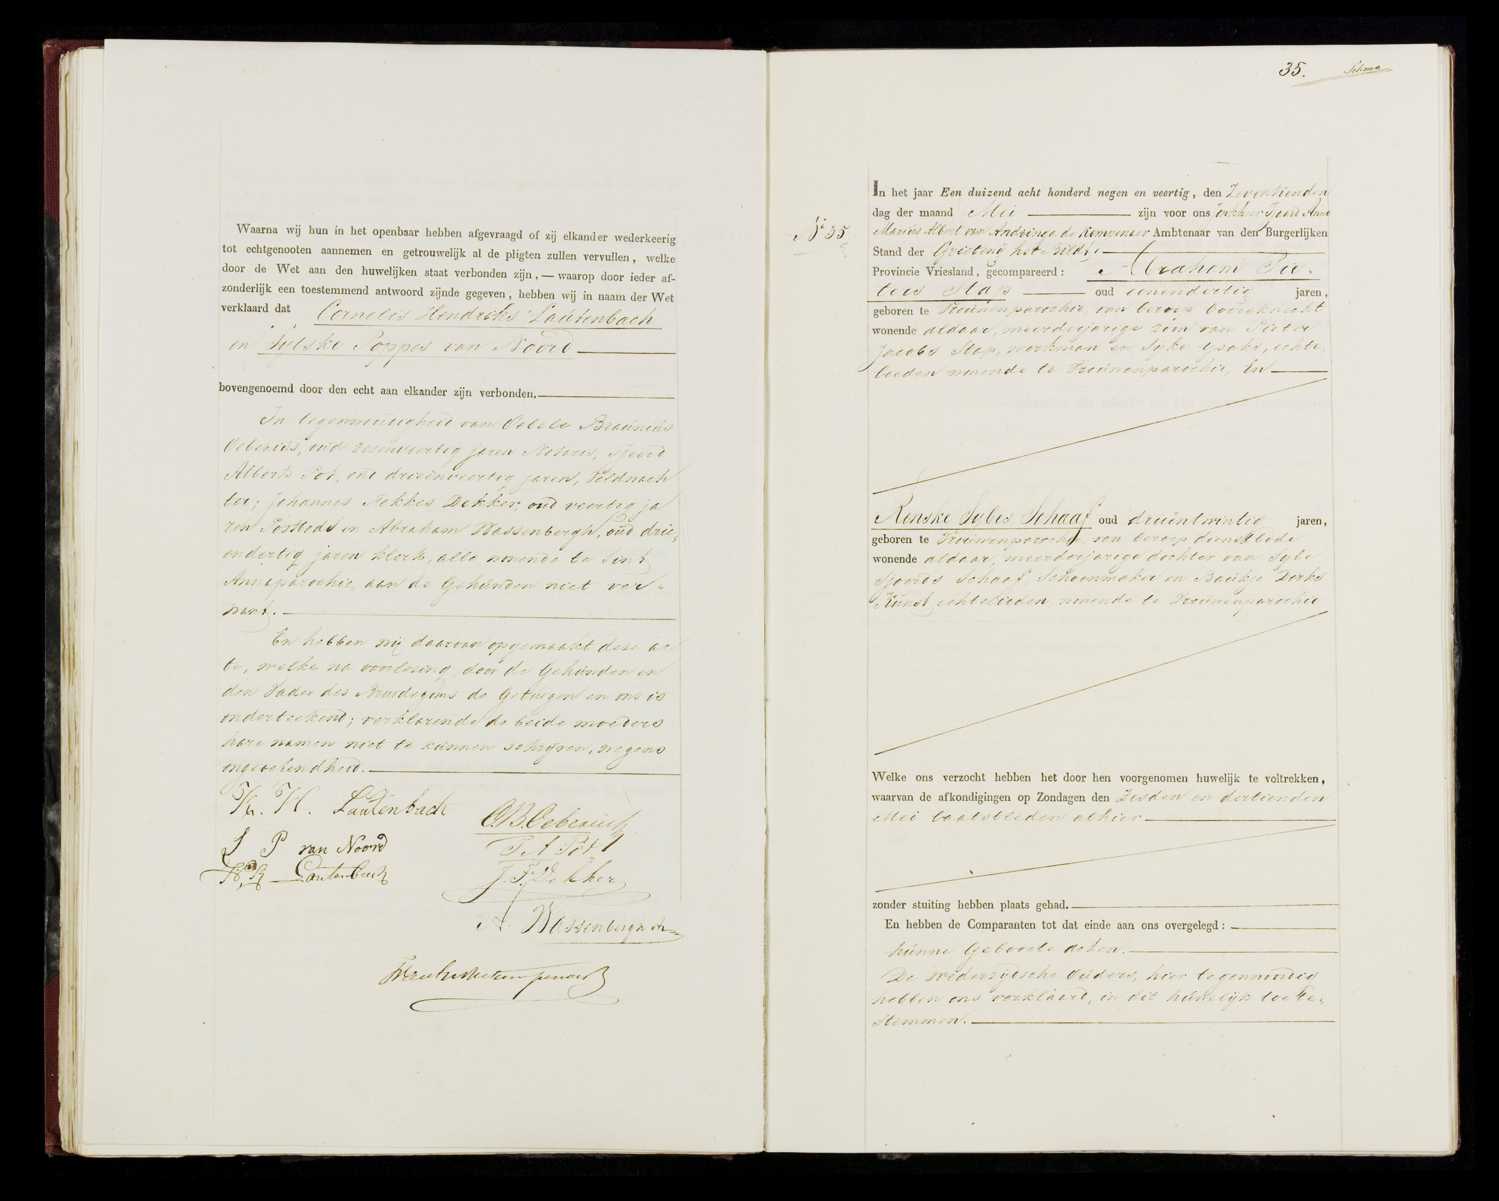 Waarna wij hun in het openbaar hebben afgevraagd of zij elkander wederkeerig
tot echtgenooten aannemen en getrouwelijk al de pligten zullen vervullen, welke
door de Wet aan den huwelijken staat verbonden zijn, — waarop door ieder af-
zonderlijk een toestemmend antwoord zijnde gegeven, hebben wij in naam der Wet
verklaard dat Cornelis Hendriks Lautenbach
en Sijtske Poppes van Noord
bovengenoemd door den echt aan elkander zijn verbonden.
In tegenwoordigheid van Oebele Brouwers
oud jaren Notaris, Sjoerd
Alberts Pot, oud drieënveertig jaren, Veldwach
ter; Johannes Fekkes Dekker, oud veertig ja
ren en Abraham Wassenbergh, oud drie,
endertig jaren klerk, alle wonende te Sint
Annaparochie, aan de Gehuwden niet ver-
want.
En hebben wij daarvan opgemaakt deze ac
te, welke na voorlezing, door de Gehuwden en
den Vader des Bruidegoms de Getuigen en ons is
onderteekend; verklarende de beide moeders
hare namen niet te kunnen schrijven, wegens
onbedrevenheid.
K. H. Lautenbach
S P van Noord
Lautenbach
O.B. Oeberius
S A Pot
J. F. Dekker
A Wassenbergh
35.
No 35
In het jaar Een duizend acht honderd negen en veertig, den Zeventienden
dag der maand Mei zijn voor ons Jonkheer Sjuck Anne
Marius Albert van Andringa de Kempenaer Ambtenaar van den Burgerlijken
Stand der Grietenij het Bildt,
Provincie Vriesland, gecompareerd: Abraham Pie-
ters Stap oud eenendertig jaren,
geboren te Vrouwenparochie, van beroep boereknecht
wonende aldaar, meerderjarige zoon van Pieter
Jacobs Stap, werkman en Ysaks, echte
lieden wonende te Vrouwenparochie, En
Renske Sybes Schaaf oud drieëntwintig jaren,
geboren te Vrouwenparochie, van beroep dienstbode
wonende aldaar, meerderjarige dochter van Sybe
Sjoerds Schaaf Schoenmaker en Baukje Dirks
Kunst, echtelieden, wonende te Vrouwenparochie
Welke ons verzocht hebben het door hen voorgenomen huwelijk te voltrekken,
waarvan de afkondigingen op Zondagen den Zesden en dertienden
Mei laatstleden alhier
zonder stuiting hebben plaats gehad.
En hebben de Comparanten tot dat einde aan ons overgelegd:
hunne Geboorte acten.
De wederzijdsche Ouders, hier tegenwoordig
hebben ons verklaard, in dit huwelijk toe te
stemmen.